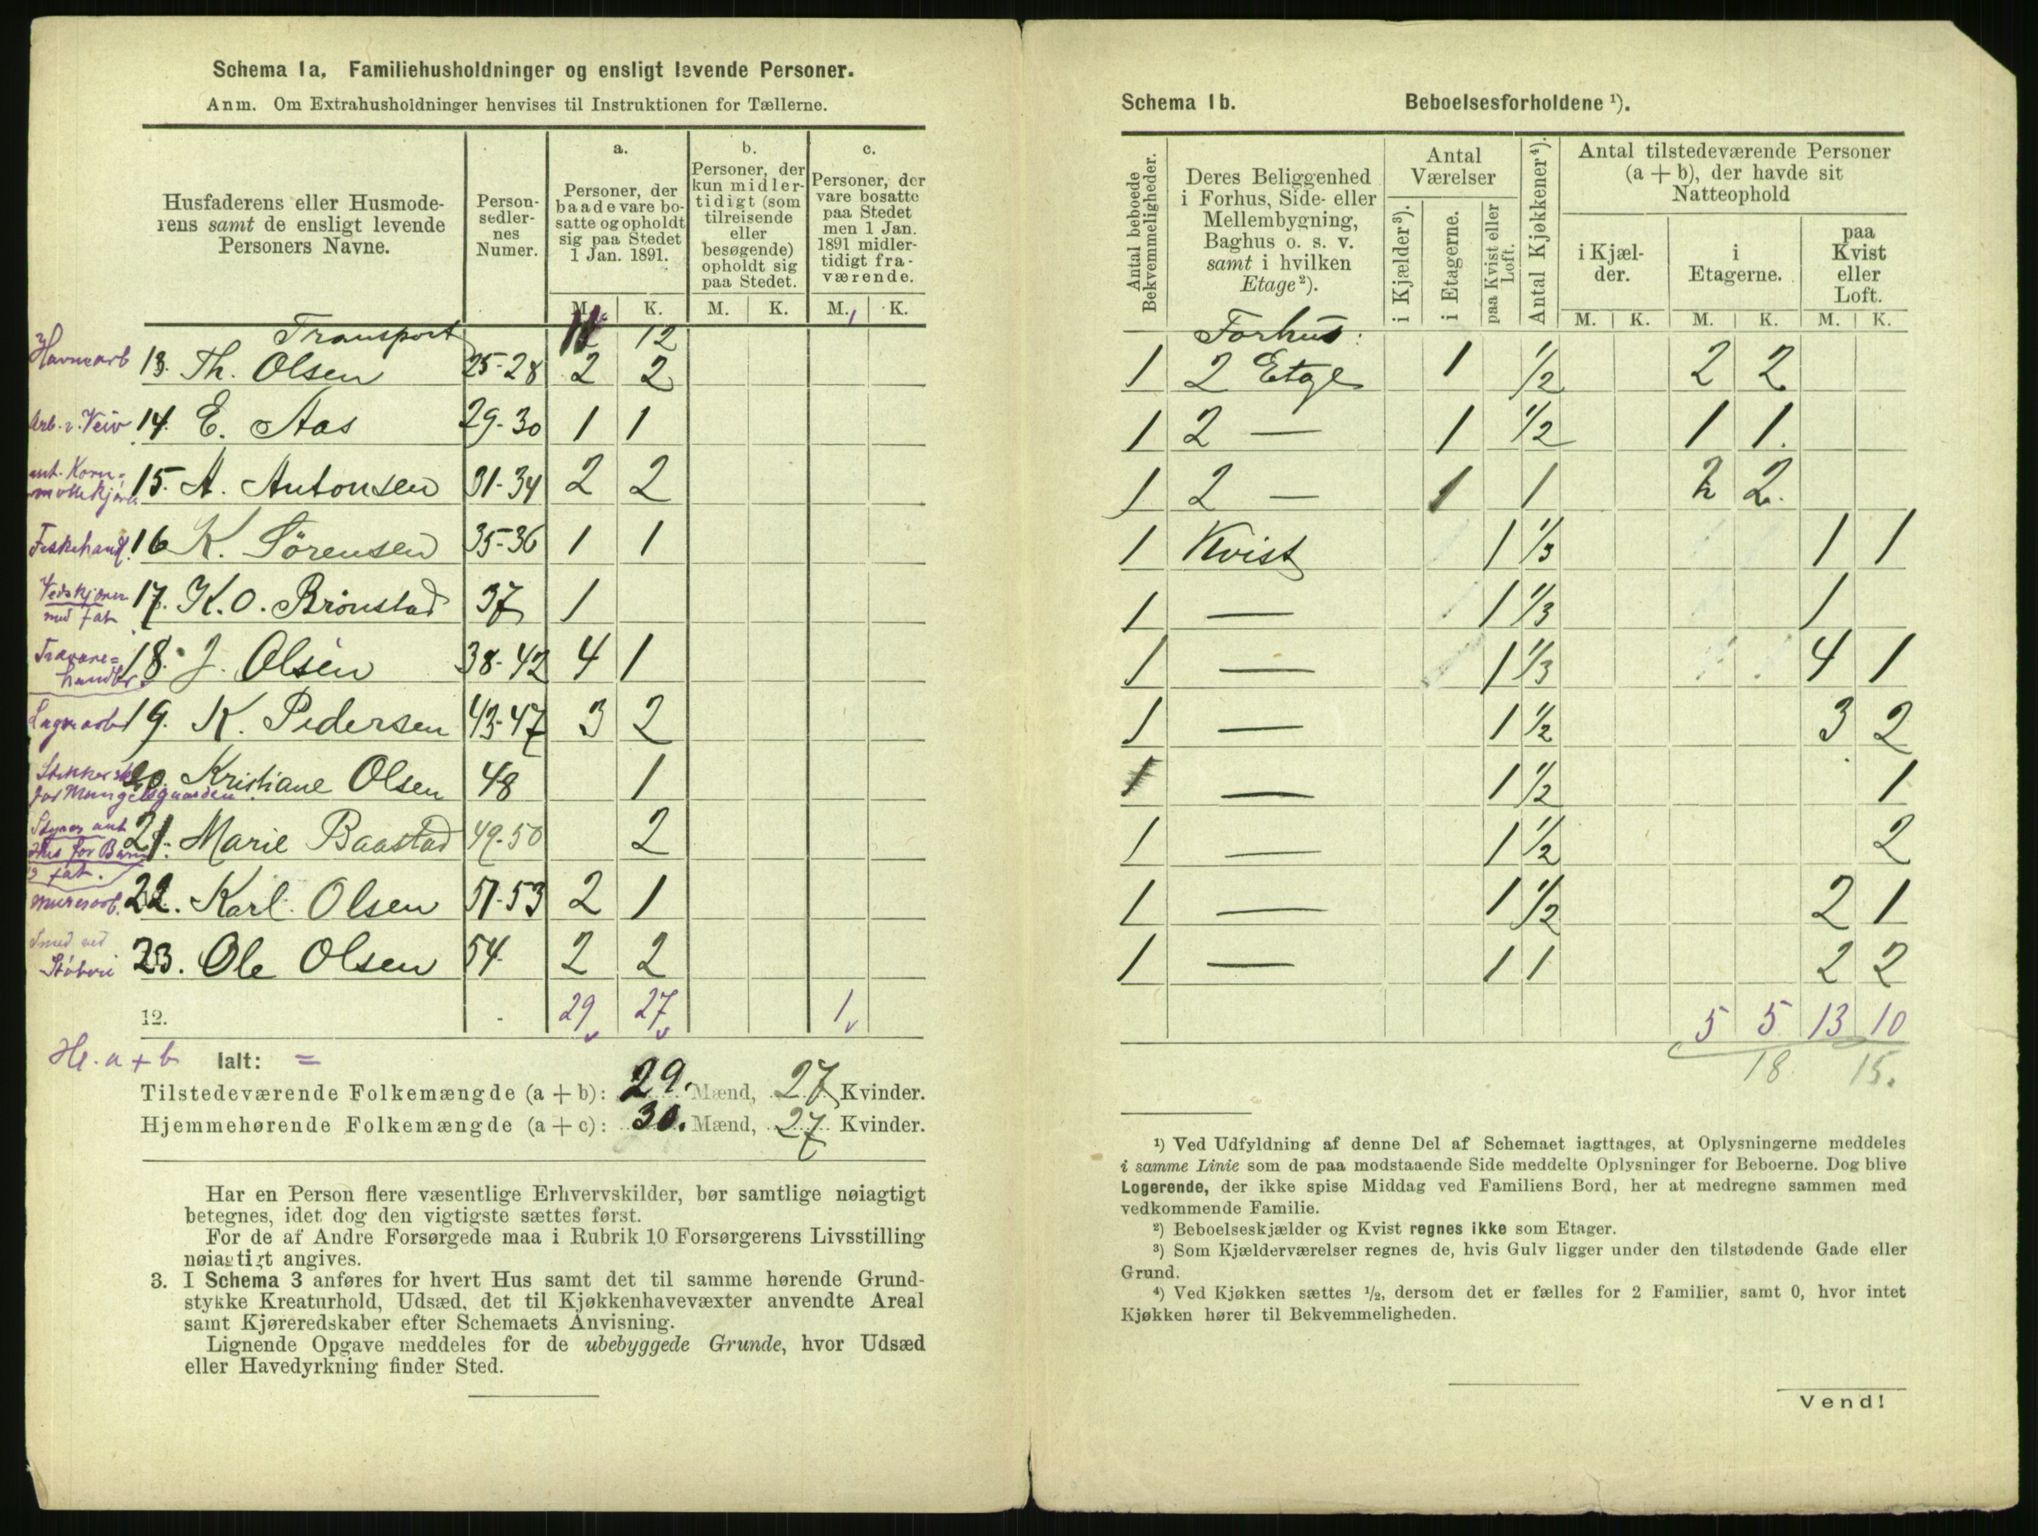 Schema 1a. Familiehusholdninger og ensligt levende Personer.
Anm. Om Extrahusholdninger henvises til Instruktionen for Tællerne.
Husfaderens eller Husmoderens samt de ensligt levende Personers Navne.
Person-sedlernes Numer.
a. Personer, der baade vare bosatte og opholdt sig paa Stedet 1 Jan. 1891.
b. Personer, der kun midlertidigt (som tilreisende eller besøgende) opholdt sig paa Stedet.
c. Personer, der vare bosatte paa Stedet men 1 Jan. 1891 midlertidigt fraværende.
M. K. M. K. M. K.
Transport 12 1
Havnearb 13. Th. Olsen 25-28 2 2
Arb. v. Veiv 14. E. Aas 29-30 1 1
15. A. Antonsen 31-34 2 2
Fiskehandl. 16 K. Sørensen 35-36 1 1
Vedskjører med fat 17. K. O. Brønstad 37 1
Travarehandler 18. J. Olsen 38-42 4 1
Lagerarb 19. K. Pedersen 43-47 3 2
20. Kristiane Olsen 48 1
21. Marie Baastad 49-50 2
Murerarb. 22. Karl Olsen 51-53 2 1
Smed ved Støberi 23. Ole Olsen 54- 2 2
12. 29 27 1
Hr. a + b Ialt: =
Tilstedeværende Folkemængde (a + b): 29. Mænd, 27 Kvinder.
Hjemmehørende Folkemængde (a + c): 30. Mænd, 27 Kvinder.
Har en Person flere væsentlige Erhvervskilder, bør samtlige nøiagtigt
betegnes, idet dog den vigtigste sættes først.
For de af Andre Forsørgede maa i Rubrik 10 Forsørgerens Livsstilling
nøiagtigt angives.
3. I Schema 3 anføres for hvert Hus samt det til samme hørende Grund-
stykke Kreaturhold, Udsæd, det til Kjøkkenhavevæxter anvendte Areal
samt Kjøreredskaber efter Schemaets Anvisning.
Lignende Opgave meddeles for de ubebyggede Grunde, hvor Udsæd
eller Havedyrkning finder Sted.
Schema 1b. Beboelsesforholdene ¹).
Antal beboede Bekvemmeligheder.
Deres Beliggenhed i Forhus, Side- eller Mellembygning, Baghus o. s. v. samt i hvilken Etage ²).
Antal Værelser
i Kjælder ³).
i Etagerne.
paa Kvist eller Loft.
Antal Kjøkkener ⁴).
Antal tilstedeværende Personer (a + b), der havde sit Natteophold
i Kjælder.
i Etagerne.
paa Kvist eller Loft.
M. K. M. K. M. K.
Forhus:
1 2 Etage 1 1/2 2 2
1 2 — 1 1/2 1 1.
1 2 — 1 1 2 2.
1 Kvist 1 1/3 1 1
1 — 1 1/3 1
1 — 1 1/3 4 1
1 — 1 1/2 3 2
1 — 1 1/2 1
1 — 1 1/2 2
1 — 1 1/2 2 1
1 — 1 1 2 2
5 5 13 10
18 15.
¹) Ved Udfyldning af denne Del af Schemaet iagttages, at Oplysningerne meddeles
i samme Linie som de paa modstaaende Side meddelte Oplysninger for Beboerne. Dog blive
Logerende, der ikke spise Middag ved Familiens Bord, her at medregne sammen med
vedkommende Familie.
²) Beboelseskjælder og Kvist regnes ikke som Etager.
³) Som Kjælderværelser regnes de, hvis Gulv ligger under den tilstødende Gade eller
Grund.
⁴) Ved Kjøkken sættes ½, dersom det er fælles for 2 Familier, samt 0, hvor intet
Kjøkken hører til Bekvemmeligheden.
Vend!